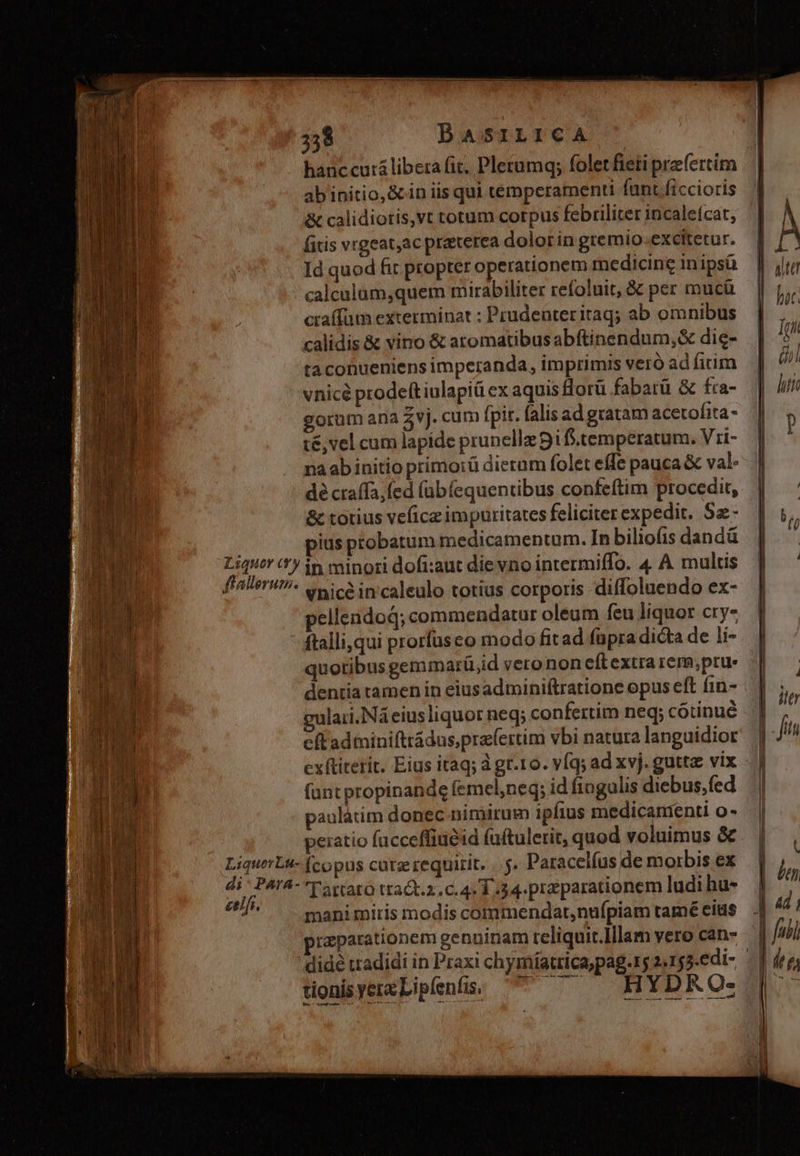 338 BASILICA
hanc curã libera ſit. Plerumq; ſolet fieri præſertim
ab initio, & in iis qui temperamenti ſunt ſiccioris
& calidioris, vt totum corpus febriliter incaleſcat,
ſitis vrgeat, ac præterea dolor in gremio excitetur.
Id quod fit propter operationem medicinę in ipsũ
calculum, quem mirabiliter reſoluit, & per mucũ
craſſum exterminat: Prudenter itaq; ab omnibus
calidis & vino & aromatibus abſtinendum, & die-
ta conueniens imperanda, imprimis verò ad ſitim
vnicè prodeſt iulapiũ ex aquis florũ fabarũ & fra-
gorum ana ʒvj. cum ſpir. ſalis ad gratam acetoſita-
tē, vel cum lapide prunellæ ℈i ß. temperatum. Vri-
na ab initio primorũ dierum ſolet eſſe pauca & val-
dè craſſa, ſed ſubſequentibus confeſtim procedit,
& totius veſicæ impuritates feliciter expedit. Sæ-
pius probatum medicamentum. In bilioſis dandũ
Liquor cry in minori doſi: aut die vno intermiſſo. 4. A multis
ſtallorum. vnicè in calculo totius corporis diſſoluendo ex-
pellendoq́; commendatur oleum ſeu liquor cry-
ſtalli, qui prorſus eo modo fit ad ſupra dicta de li-
quoribus gemmarũ, id vero non eſt extra rem, pru-
dentia tamen in eius adminiſtratione opus eſt ſin-
gulari. Nã eius liquor neq; confertim neq; cõtinuè
eſt adminiſtrãdus, præſertim vbi natura languidior
exſtiterit. Eius itaq; à gr. 10. vſq; ad xvj. guttæ vix
ſunt propinandę ſemel, neq; id ſingulis diebus, ſed
paulàtim donec nimirum ipſius medicamenti o-
peratio ſucceſſiuè id ſuſtulerit, quod voluimus &
Liquor Lu- ſcopus curæ requirit. 5. Paracelſus de morbis ex
di Para- Tartaro tract. 2. c. 4. T. 34. præparationem ludi hu-
celſi. mani miris modis commendat, nuſpiam tamē eius
præparationem genuinam reliquit. Illam vero can-
didè tradidi in Praxi chymiatrica, pag. 152. 153. edi-
tionis veræ Lipſenſis. HYDRO-